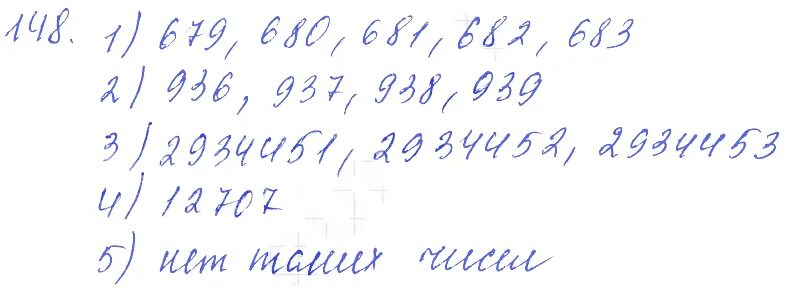 148. 1) 679, 680, 681, 682, 683
2) 936, 937, 938, 939
3) 2934451, 2934452, 2934453
4) 12707
5) нет таких чисел